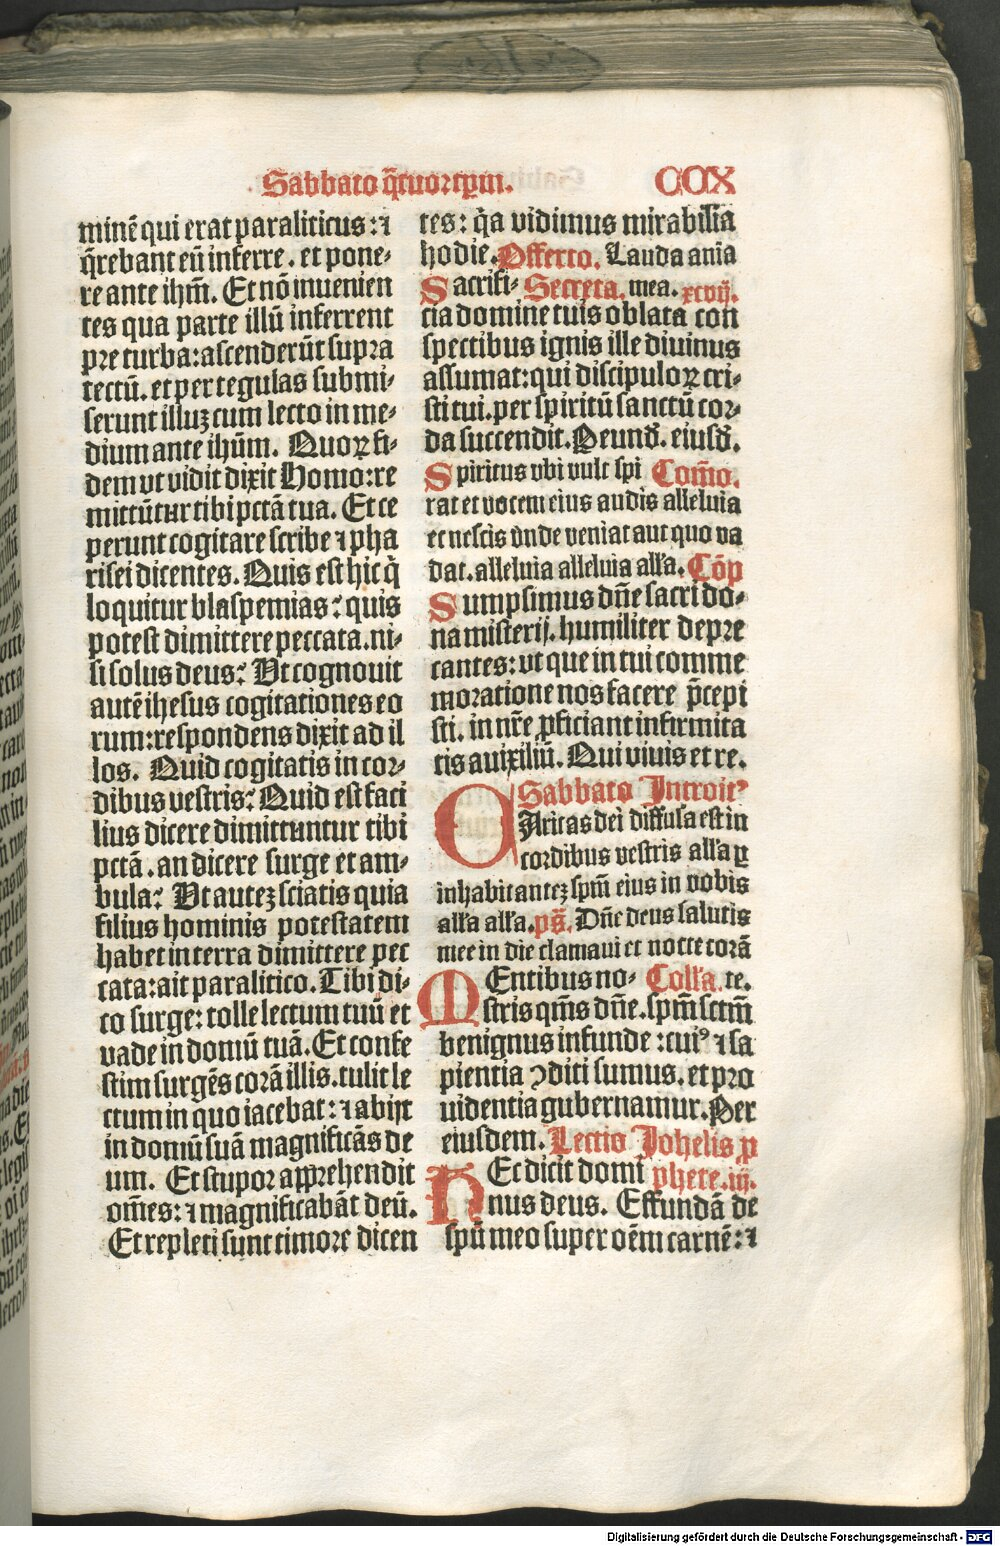 Sabbato q̄tuortꝑm.
CCX
minē qui erat paraliticus: ⁊
q̄rebant eū inferre. et pone⸗
re ante ihm̄. Et nō inuenien
tes qua parte illū inferrent
pre turba: ascenderūt supra
tectū. et per tegulas submi⸗
serunt illuꝫ cum lecto in me⸗
dium ante ihūm. Quoꝝ fi⸗
dem vt vidit dixit Homo: re
mittūtur tibi pctā tua. Et ce
perunt cogitare scribe ⁊ pha
risei dicentes. Quis est hic q̄
loquitur blaspemias? quis
potest dimittere peccata. ni⸗
si solus deus? Vt cognouit
autē ihesus cogitationes eo
rum: respondens dixit ad il
los. Quid cogitatis in cor⸗
dibus vestris? Quid est faci
lius dicere dimittuntur tibi
pctā. an dicere surge et am⸗
bula? Vt auteꝫ sciatis quia
filius hominis potestatem
habet in terra dimittere pec
cata: ait paralitico. Tibi di⸗
co surge: tolle lectum tuū et
vade in domū tuā. Et confe
stim surgēs corā illis. tulit le
ctum in quo iacebat: ⁊ abijt
in domū suā magnificās de
um. Et stupor apprehendit
om̄es: ⁊ magnificabāt deū.
Et repleti sunt timore dicen
tes: q̄a vidimus mirabilia
hodie. Offerto. Lauda aīa
Sacrifi⸗ Secreta. mea. xcvij.
cia domine tuis oblata con
spectibus ignis ille diuinus
assumat: qui discipuloꝝ cri⸗
sti tui. per spiritū sanctū cor⸗
da succendit. Per und̄. eiusd̄.
Spiritus vbi vult spi Com̄o.
rat et vocem eius audis alleluia
et nescis vnde veniat aut quo va
dat. alleluia alleluia all'a. Cōp
Sumpsimus dn̄e sacri do⸗
na misterij. humiliter depre
cantes: vt que in tui comme
moratione nos facere p̄cepi
sti. in nr̄e ꝓficiant infirmita
tis auixiliū. Qui viuis et re.
Sabbato Introitꝰ
CAritas dei diffusa est in
cordibus vestris all'a ꝑ
inhabitanteꝫ spm̄ eius in vobis
all'a all'a. ps̄. Dn̄e deus salutis
mee in die clamaui et nocte corā
MEntibus no⸗ Coll'a. te.
stris qm̄s dn̄e. spm̄ sctm̄
benignus infunde: cuiꝰ ⁊ sa
pientia ꝯditi sumus. et pro
uidentia gubernamur. Per
eiusdem. Lectio Johelis ꝓ
HEc dicit domi phete. iij.
nus deus. Effundā de
spū meo super oēm carnē: ⁊
Digitalisierung gefördert durch die Deutsche Forschungsgemeinschaft - DFG